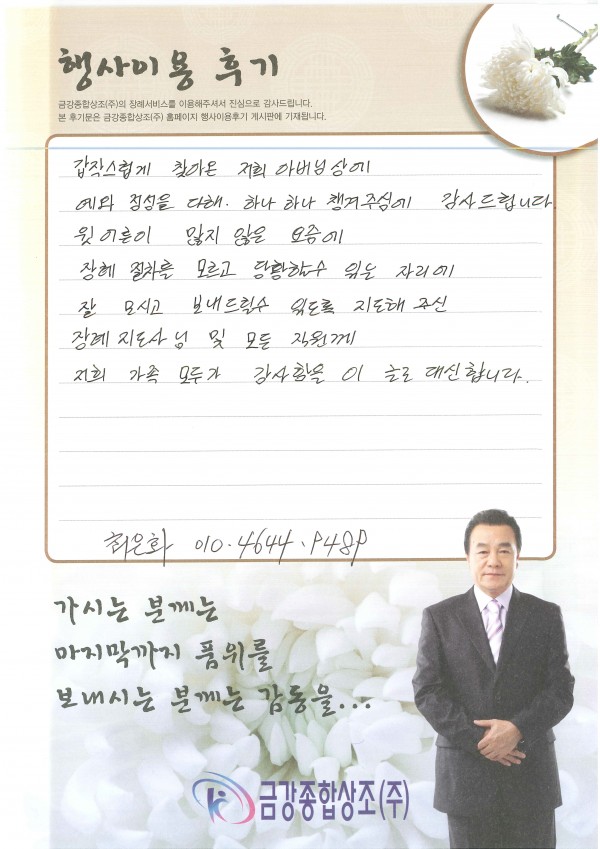 행사이용 후기
금강종합상조(주)의 장례서비스를 이용해주셔서 진심으로 감사드립니다.
본 후기문은 금강종합상조(주) 홈페이지 행사이용후기 게시판에 기재됩니다.
갑작스럽게 찾아온 저희 아버님상에
예와 정성을 다해. 하나 하나 챙겨주심에 감사드립니다
윗어른이 많지 않은 요즘에
장혜 절차를 모르고 당황할수 있는 자리에
잘 모시고 보내드릴수 있도록 지도해 주신
장례지도사님 및 모든 직원께
저희 가족 모두가 감사함을 이 글로 대신합니다.
최은화 010.4644.9489
가시는 분께는
마지막까지 품위를
보내시는 분께는 감동을...
금강종합상조(주)